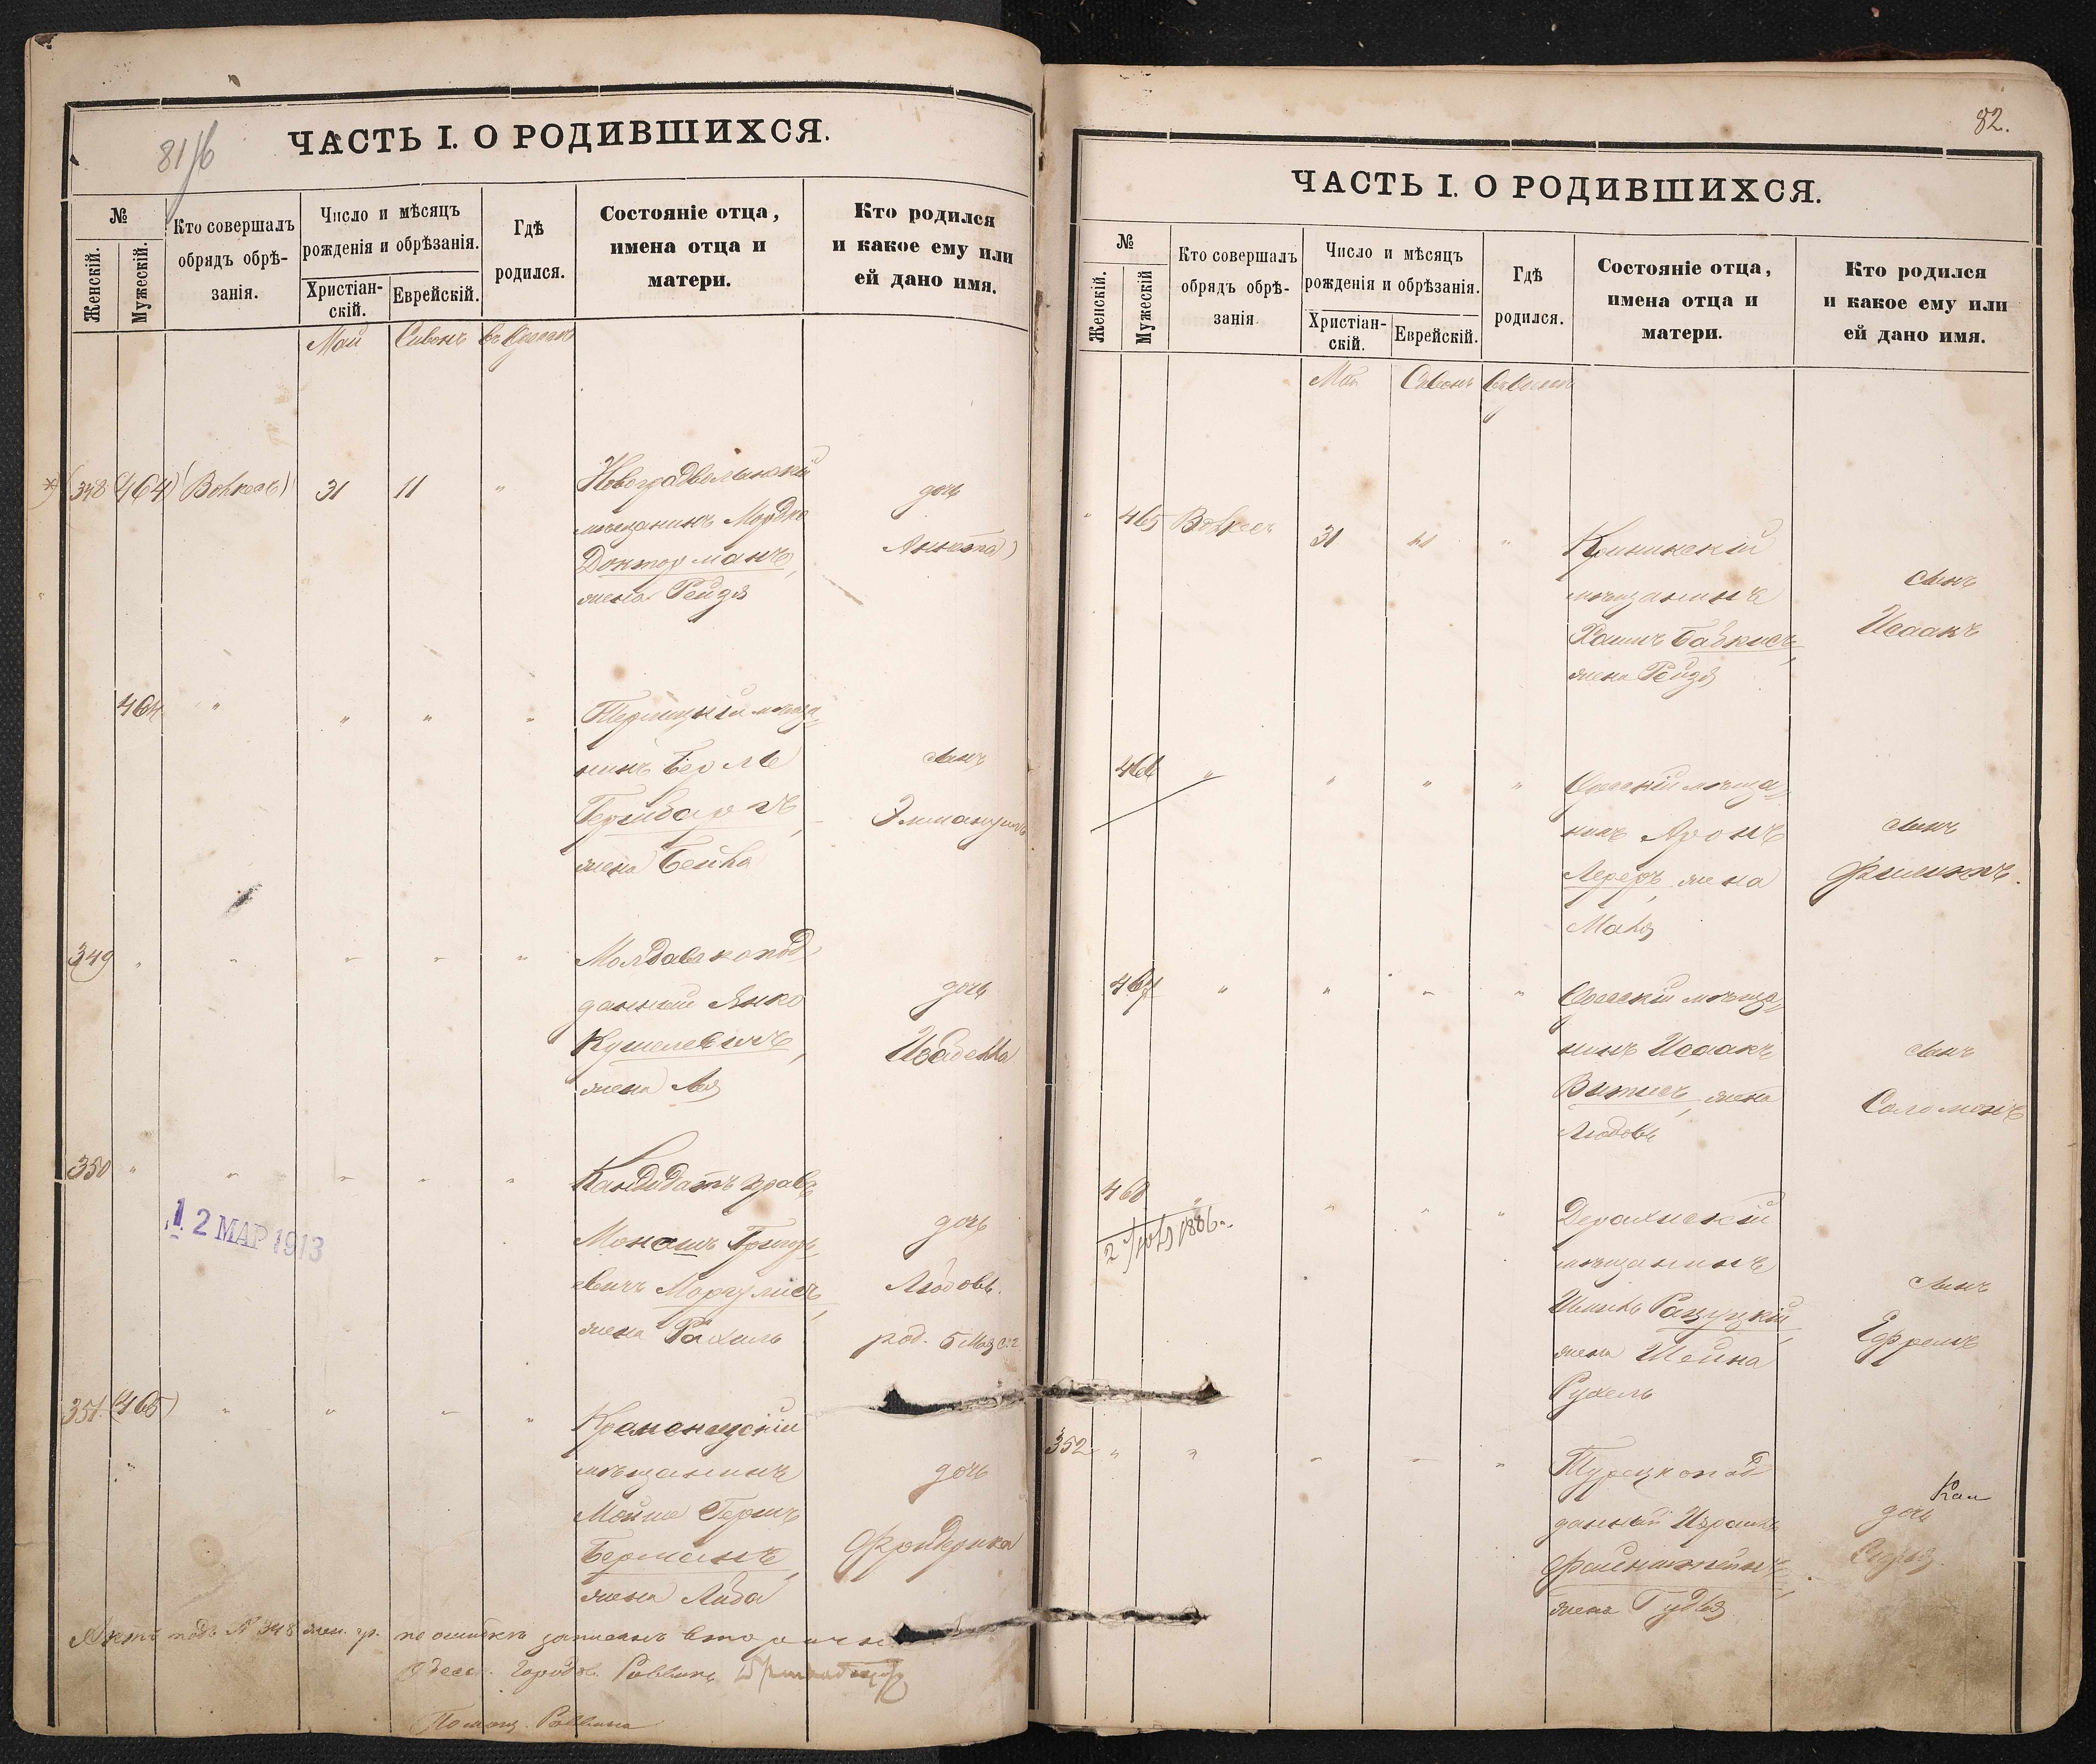 81/б
ЧАСТЬ I. О РОДИВШИХСЯ.
№
Женскій.
Мужескій.
Кто совершалъ
обрядъ обрѣ-
занія.
Число и мѣсяцъ
рожденія и обрѣзанія.
Христіан-
скій.
Еврейскій.
Гдѣ
родился.
Состояніе отца,
имена отца и
матери.
Кто родился
и какое ему или
ей дано имя.
Май Сивонъ въ Одессѣ
*) (348 (464) (Вольковъ) 31 11 "
Новоградволынскій
мѣщанинъ Мордко
Докторманъ,
жена Рейзя
дочь
Анюта)
464 " " " "
мѣща=
нинъ Берль
жена Бейла
сынъ
Эммануилъ
349 " " " " "
Молдавскопод
данный Янко
Кушелевичъ,
жена Лея
дочь
Изабелла
350 " " " " "
Кандидатъ правъ
Монашъ Григорь
евичъ Моргулисъ,
жена Рахиль
дочь
Любовь.
род. 5 Мая с.г.
12 МАР 1913
351. (465) " " " "
"
Кременецкій
мѣщанинъ
Мойше Гершъ
Берманъ,
жена Либа
дочь
Фридерика
Актъ подъ № 348 жен. гр. по ошибкѣ записанъ
Одесс. Городск. Раввинъ
Помощ. Раввина
82.
ЧАСТЬ I. О РОДИВШИХСЯ.
№
Женскій.
Мужескій
Кто совершалъ
обрядъ обрѣ-
занія
Число и мѣсяцъ
рожденія и обрѣзанія.
Христіан-
скій.
Еврейскій.
Гдѣ
родился.
Состояніе отца,
имена отца и
матери.
Кто родился
и какое ему или
ей дано имя.
Май Сивонъ въ Одессѣ
" 465 31 11 "
Крынкскій
мѣщанинъ
Хаимъ Бабкисъ,
жена Рейзя
сынъ
Исаакъ
466 " " " "
Одесскій мѣща=
нинъ Аронъ
Лереръ, жена
Маля
сынъ
Филиппъ.
467 " " " "
Одесскій мѣща=
нинъ Исаакъ
жена
Любовь
сынъ
Соломонъ
468 " " " "
2 1886 г.
Деражнскій
мѣщанинъ
жена Шейна
Рухель
сынъ
Ефремъ
352 " " " " "
Турецкопод
данный Израиль
Файнштейнъ,
жена Гудля
дочь